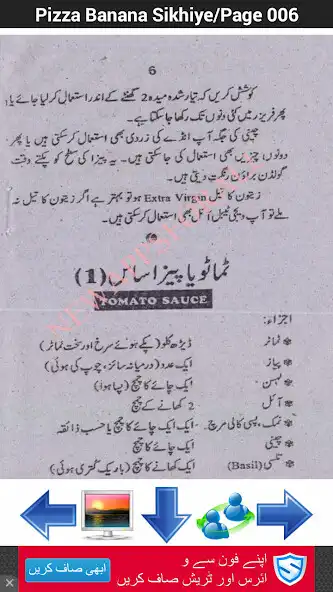 Pizza Banana Sikhiye/Page 006
6
کوشش کریں کہ تیار شدہ میدہ 2 گھنٹے کے اندر استعمال کر لیا جائے یا
پھر فریزر میں کئی دنوں تک رکھا جا سکتا ہے۔
چینی کی جگہ آپ انڈے کی زردی بھی استعمال کر سکتی ہیں یا پھر
دونوں چیزیں بھی استعمال کی جا سکتی ہیں۔ یہ پیزا کی سطح کو پکتے وقت
گولڈن براؤن رنگت دیتی ہیں۔
زیتون کا تیل Extra Virgin ہو تو بہتر ہے اگر زیتون کا تیل نہ
ملے تو آپ ویجی ٹیبل آئل بھی استعمال کر سکتی ہیں۔
ٹماٹو یا پیزا ساس (1)
TOMATO SAUCE
اجزاء:
ٹماٹر ڈیڑھ کلو (پکے ہوئے سرخ اور سخت ٹماٹر)
پیاز ایک عدد (درمیانہ سائز، چوپ کی ہوئی)
لہسن ایک چائے کا چمچ (پسا ہوا)
آئل 2 کھانے کے چمچ
نمک، پسی کالی مرچ ایک ایک چائے کا چمچ یا حسب ذائقہ
چینی ایک چائے کا چمچ
تلسی (Basil) ایک کھانے کا چمچ (باریک کتری ہوئی)
اپنے فون سے و
ائرس اور ٹریش صاف کریں
ابھی صاف کریں